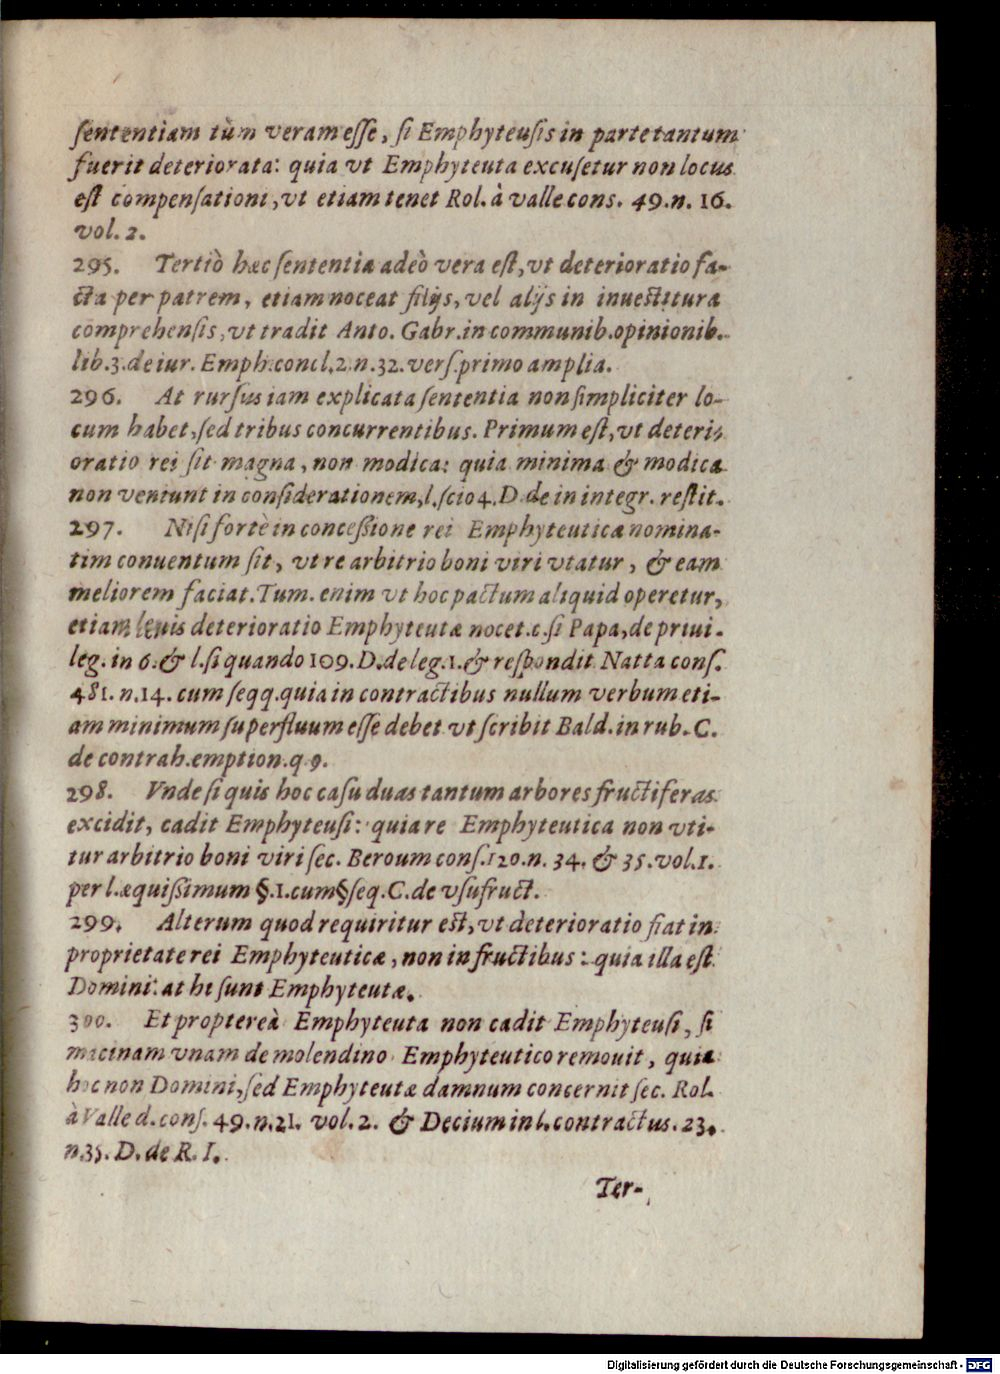 ſententiam tùm veram eſſe, ſi Emphyteuſis in parte tantum
fuerit deteriorata: quia vt Emphyteuta excuſetur non locus
eſt compenſationi, vt etiam tenet Rol. à valle cons. 49. n. 16.
vol. 2.
295. Tertiò hæc ſententia adeò vera eſt, vt deterioratio fa-
cta per patrem, etiam noceat filijs, vel alijs in inueſtitura
comprehenſis, vt tradit Anto. Gabr. in communib. opinionib.
lib. 3. de iur. Emph. concl. 2. n. 32. verſ. primo amplia.
296. At rurſus iam explicata ſententia non ſimpliciter lo-
cum habet, ſed tribus concurrentibus. Primum eſt, vt deteri-
oratio rei ſit magna, non modica: quia minima & modica
non veniunt in conſiderationem, l. ſcio 4. D. de in integr. reſtit.
297. Niſi fortè in conceßione rei Emphyteuticæ nomina-
tim conuentum ſit, vt re arbitrio boni viri vtatur, & eam
meliorem faciat. Tum. enim vt hoc pactum aliquid operetur,
etiam leuis deterioratio Emphyteutæ nocet. c. ſi Papa, de priui-
leg. in 6. & l. ſi quando 109. D. de leg. 1. & reſpondit Natta conſ.
481. n. 14. cum ſeqq. quia in contractibus nullum verbum eti-
am minimum ſuperfluum eſſe debet vt ſcribit Bald. in rub. C.
de contrah. emption. q. 9.
298. Vnde ſi quis hoc caſu duas tantum arbores fructiferas
excidit, cadit Emphyteuſi: quia re Emphyteutica non vti-
tur arbitrio boni viri ſec. Beroum conſ. 120. n. 34. & 35. vol. 1.
per l. æquißimum §. 1. cum § ſeq. C. de vſufruct.
299. Alterum quod requiritur eſt, vt deterioratio fiat in
proprietate rei Emphyteuticæ, non in fructibus: quia illa eſt
Domini: at hi ſunt Emphyteutæ.
300. Et proptereà Emphyteuta non cadit Emphyteuſi, ſi
macinam vnam de molendino Emphyteutico remouit, quia
hoc non Domini, ſed Emphyteutæ damnum concernit ſec. Rol.
à Valle d. conſ. 49. n. 21. vol. 2. & Decium in l. contractus. 23.
n. 35. D. de R. I.
Ter-
Digitalisierung gefördert durch die Deutsche Forschungsgemeinschaft - DFG